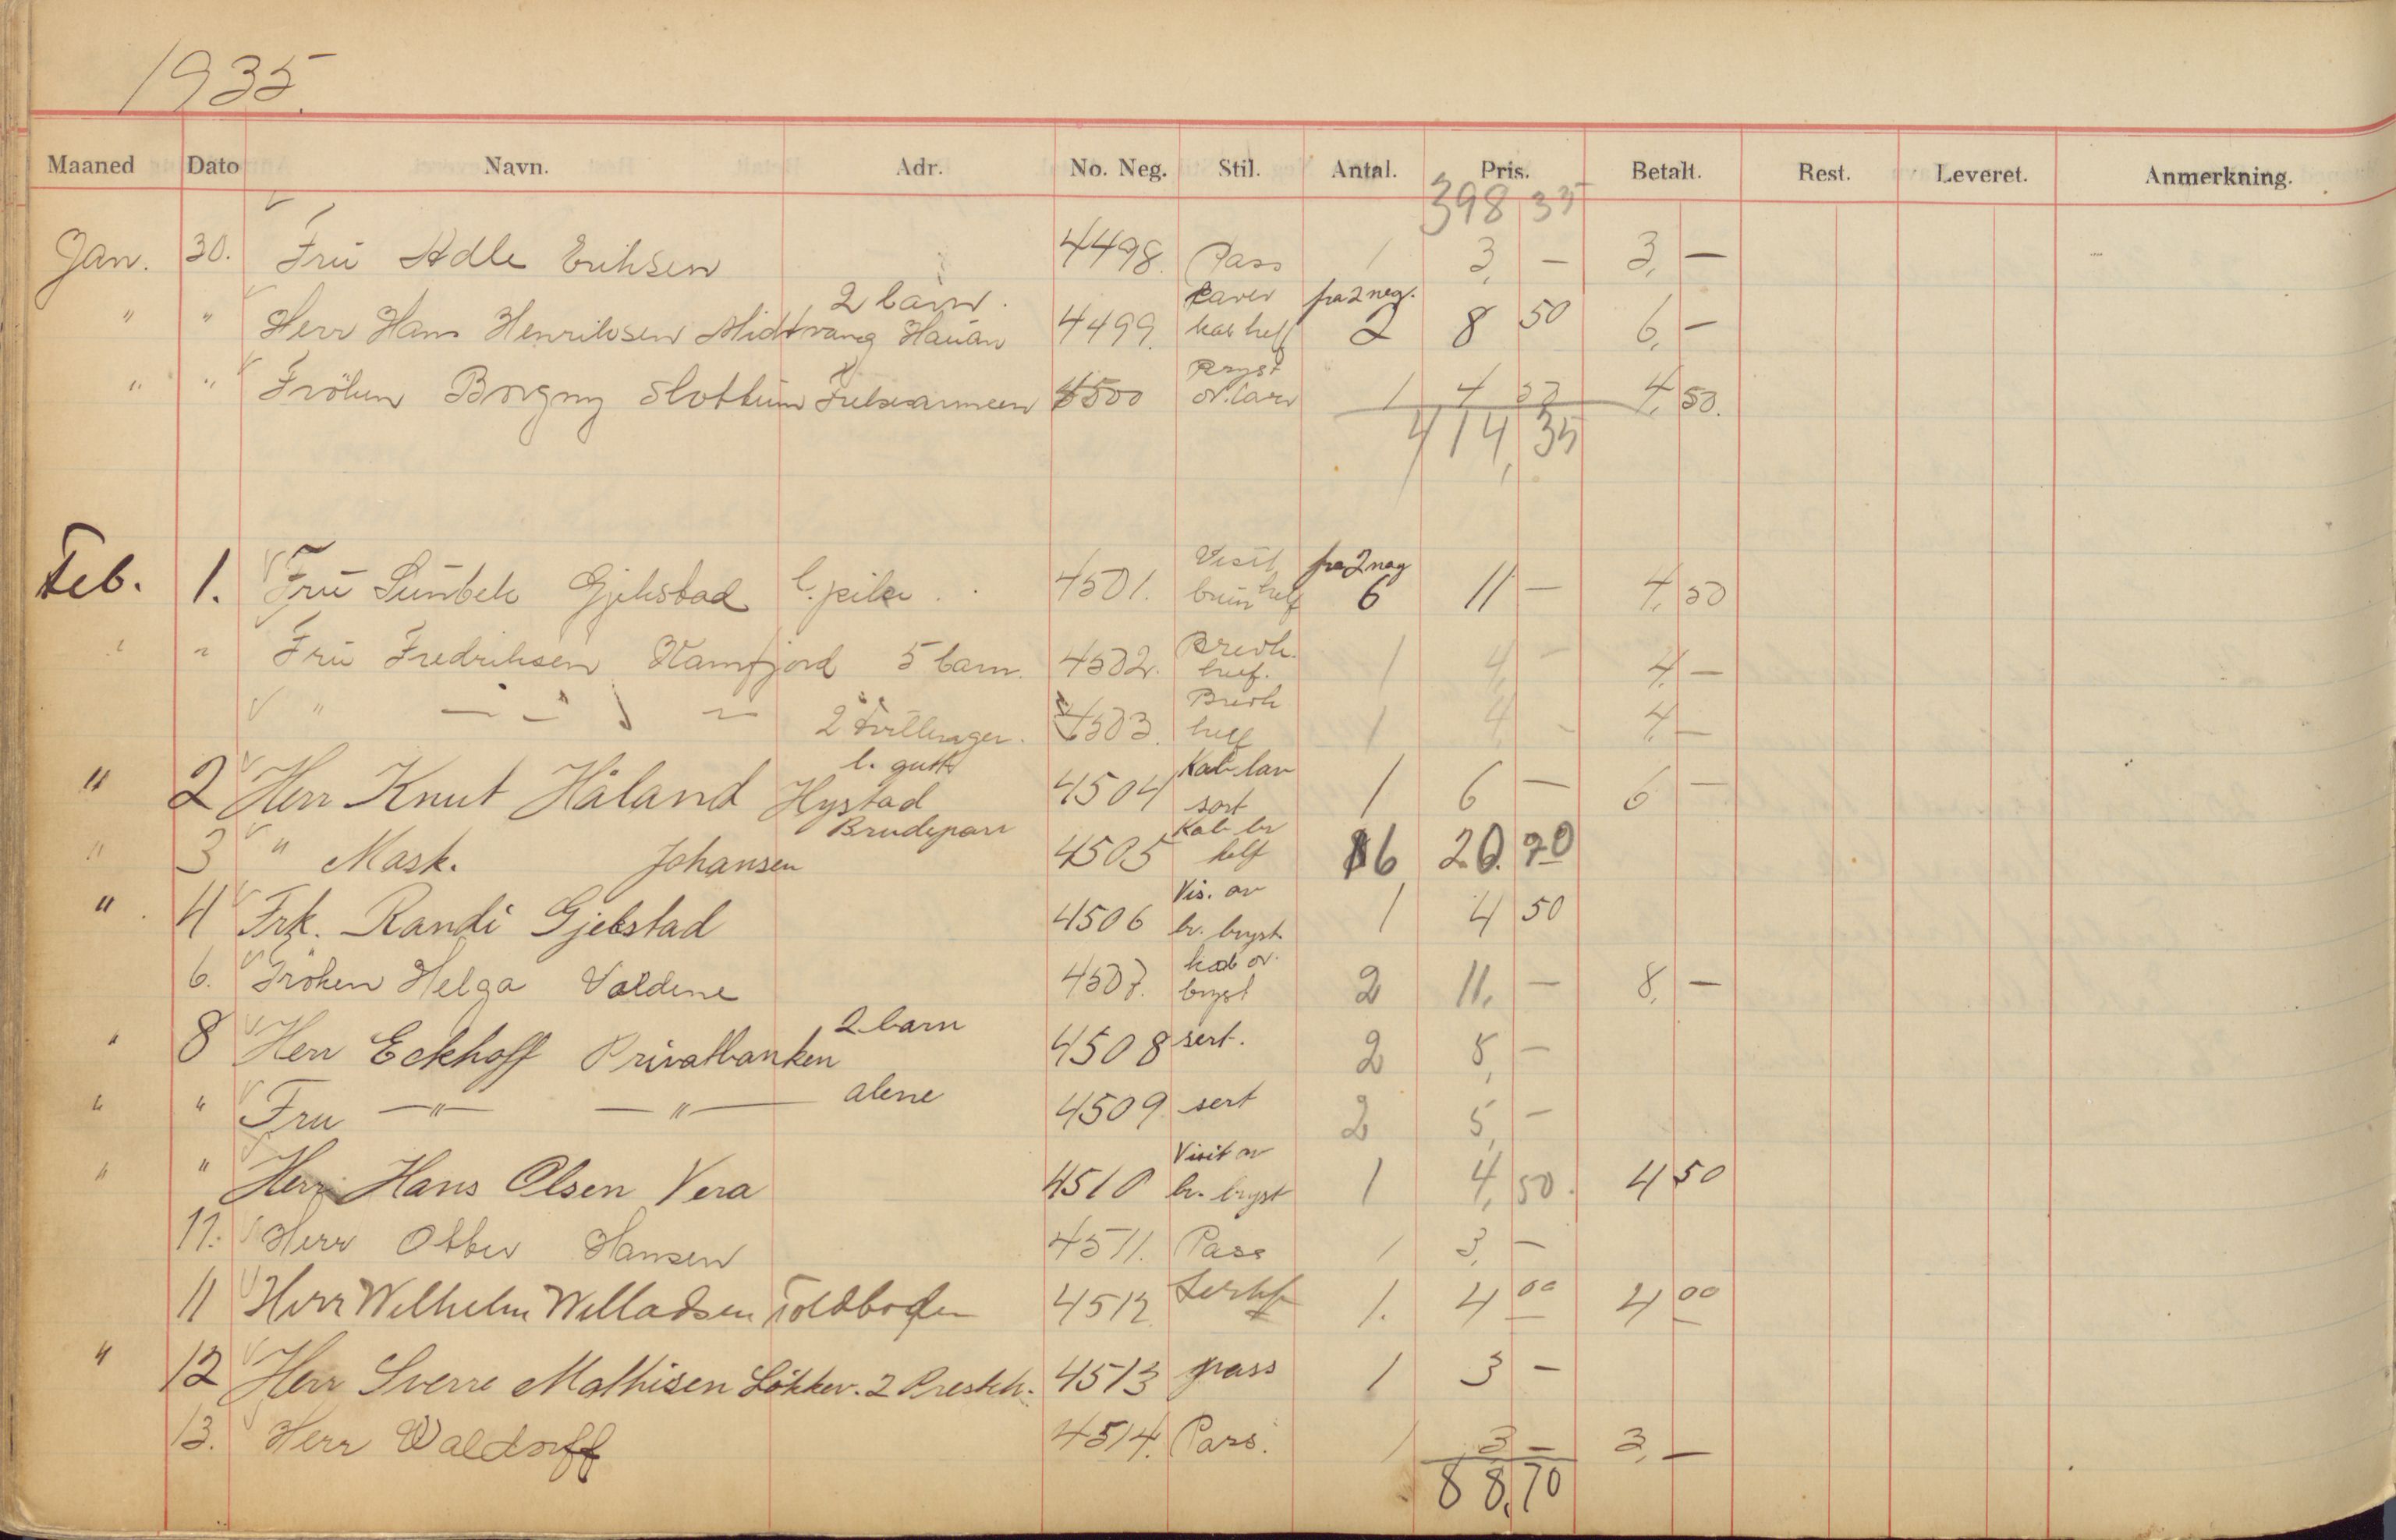 1935.
Maaned Dato Navn. Adr. No. Neg. Stil. Antal. Pris. Betalt. Rest. Leveret. Anmerkning.
398 35
Jan. 30. Frü Adle Eriksen 4498. Pass 1 3, — 3, —
2 barn. fra 2 neg.
" " Herr Hans Henriksen Midtvang Hauan 4499. kab helf 2 8 50 6, —
Bryst
" " Fröken Borgny Slottum 4500 1 4 50 4, 50.
414,35
Visit fra 2 neg
Feb. 1. Frü Gjekstad l. pike 4501. brun helf 6 11 — 4, 50
Bredk.
" " Frü Fredriksen 5 barn. 4502. helf. 1 4, — 4, —
Bredk
" — " — 2 Tvillinger. 4503. helf 1 4, — 4, —
l. gutt Kab.
" 2 Herr Knut Håland Hystad 4504 sort 1 6 — 6 —
Brudepar Kab. br
" 3 " Mask. Johansen 4505 helf 6 20.70
Vis. ov
" 4 Frk. Randi Gjekstad 4506 br. bryst 1 4 50
kab ov.
6. Fröken Helga Valdene 4507. bryst 2 11, — 8, —
2 barn
" 8 Herr Eckhoff Privatbanken 4508 sert. 2 8, —
alene
" " Fru — " — — " — 4509 sert 2 5, —
Visit ov
" " Herr Hans Olsen Vera 4510 br. bryst 1 4, 50. 4 50
11. Herr Hansen 4511. Pass 1 3, —
11 Herr Wilhelm Willadsen Toldboden 4512 1. 4 00 4 00
" 12 Herr Sverre Mathisen 4513 pass 1 3 —
13. Herr Waldorff 4514. Pass. 1 3 — 3, —
88,70